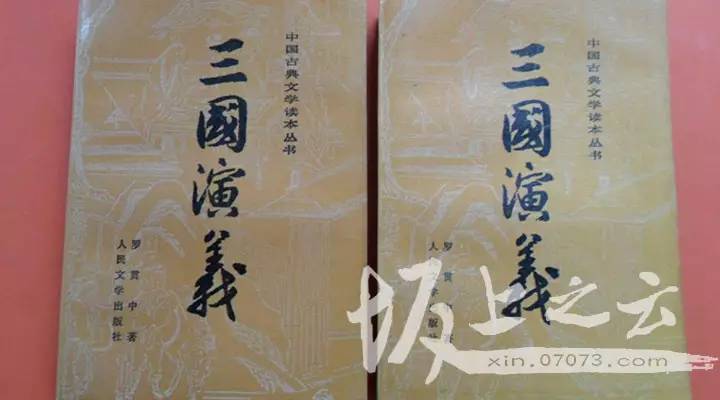 中国古典文学读本丛书
三國演義
罗贯中著
人民文学出版社
中国古典文学读本丛书
三國演義
罗贯中著
人 学出版社
坂上之云
xin.07073.com